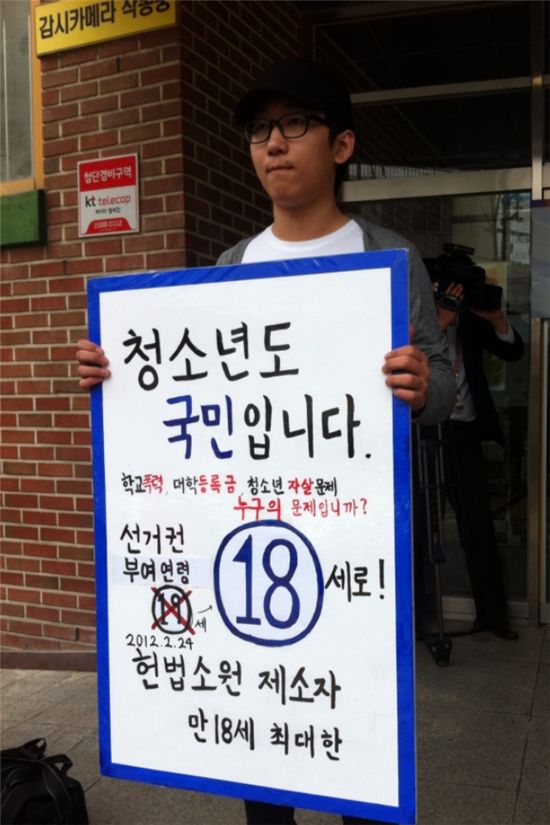 감시카메라 작동중
첨단경비구역
kt telecop
1588-0112
청소년도
국민입니다.
학교폭력, 대학등록금, 청소년 자살문제
누구의 문제입니까?
선거권
부여연령
19세 → 18세로!
2012.2.24
헌법소원 제소자
만18세 최대한